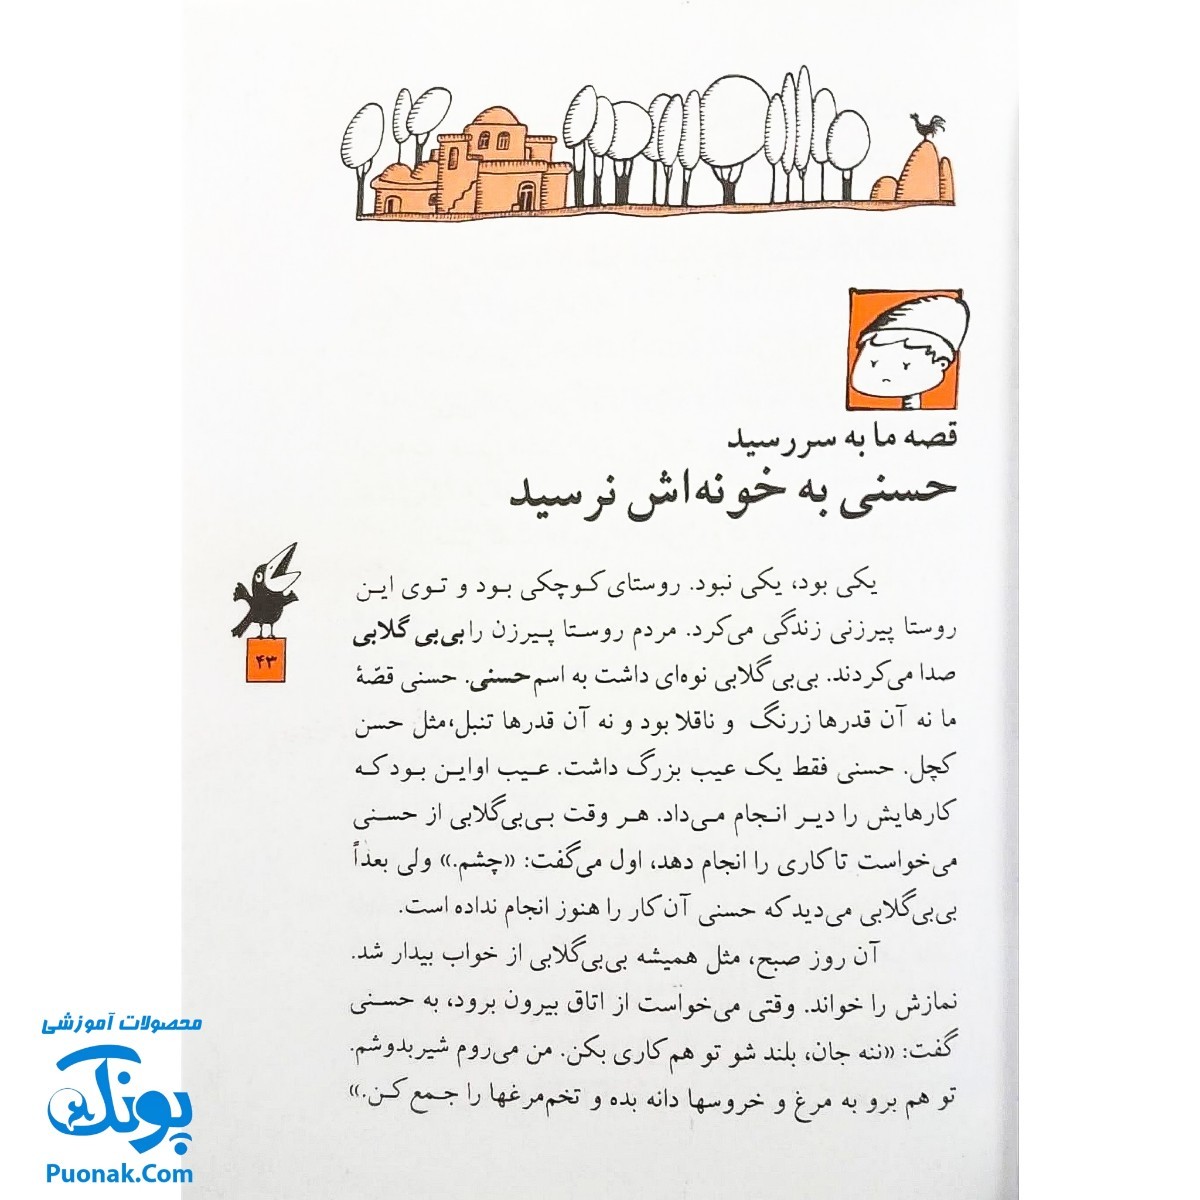 قصه ما به سر رسید
حسنی به خونه‌اش نرسید
یکی بود، یکی نبود. روستای کوچکی بود و توی این
روستا پیرزنی زندگی می‌کرد. مردم روستا پیرزن را بی‌بی گلابی
صدا می‌کردند. بی‌بی‌گلابی نوه‌ای داشت به اسم حسنی. حسنی قصّهٔ
ما نه آن قدرها زرنگ و ناقلا بود و نه آن قدرها تنبل،مثل حسن
کچل. حسنی فقط یک عیب بزرگ داشت. عیب اواین بود که
کارهایش را دیر انجام می‌داد. هر وقت بی‌بی‌گلابی از حسنی
می‌خواست تا کاری را انجام دهد، اول می‌گفت: «چشم.» ولی بعداً
بی‌بی‌گلابی می‌دید که حسنی آن کار را هنوز انجام نداده است.
آن روز صبح، مثل همیشه بی‌بی‌گلابی از خواب بیدار شد.
نمازش را خواند. وقتی می‌خواست از اتاق بیرون برود، به حسنی
گفت: «ننه جان، بلند شو تو هم کاری بکن. من می‌روم شیربدوشم.
تو هم برو به مرغ و خروسها دانه بده و تخم‌مرغها را جمع کن.»
۴۳
محصولات آموزشی
پونک
Puonak.Com